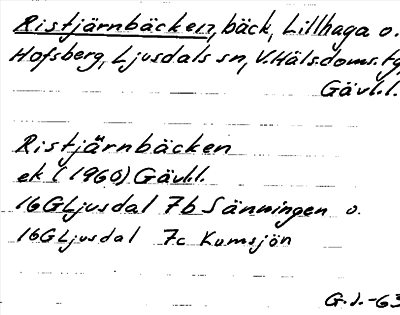 Ristjärnbäcken, bäck, Lillhaga o.
Hofsberg, Ljusdals sn, V. Häls. doms. tg,
Gävl. l.
Ristjärnbäcken
ek (1960) Gävl.l.
16G Ljusdal 7b Sänningen o.
16G Ljusdal 7c Kumsjön
G.J.-63